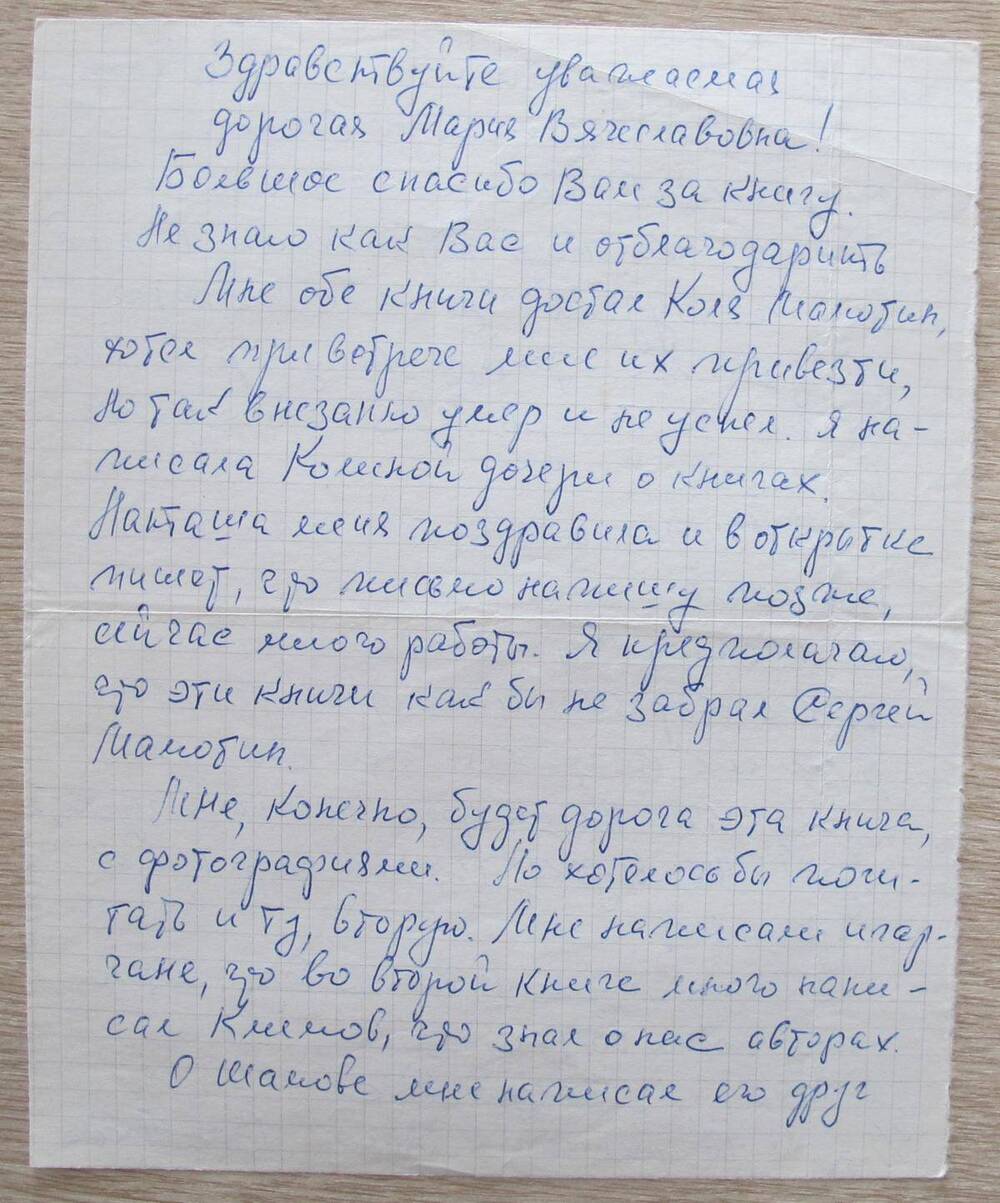 Здравствуйте уважаемая
дорогая Мария Вячеславовна!
Большое спасибо Вам за книгу.
Не знаю как Вас и отблагодарить
Мне обе книги достал Коля
хотел при встрече мне их привезти,
но так внезапно умер и не успел. Я на-
писала Колиной дочери о книгах.
Наташа меня поздравила и в открытке
пишет, что письмо напишу позже,
сейчас много работы. Я предполагаю,
что эти книги как бы не забрал Сергей
Мне, конечно, будет дорога эта книга,
с фотографиями. Но хотелось бы почи-
тать и ту, вторую. Мне написали игар-
чане, что во второй книге много напи-
сал Климов, что знал о нас авторах.
О Шамове мне написал его друг